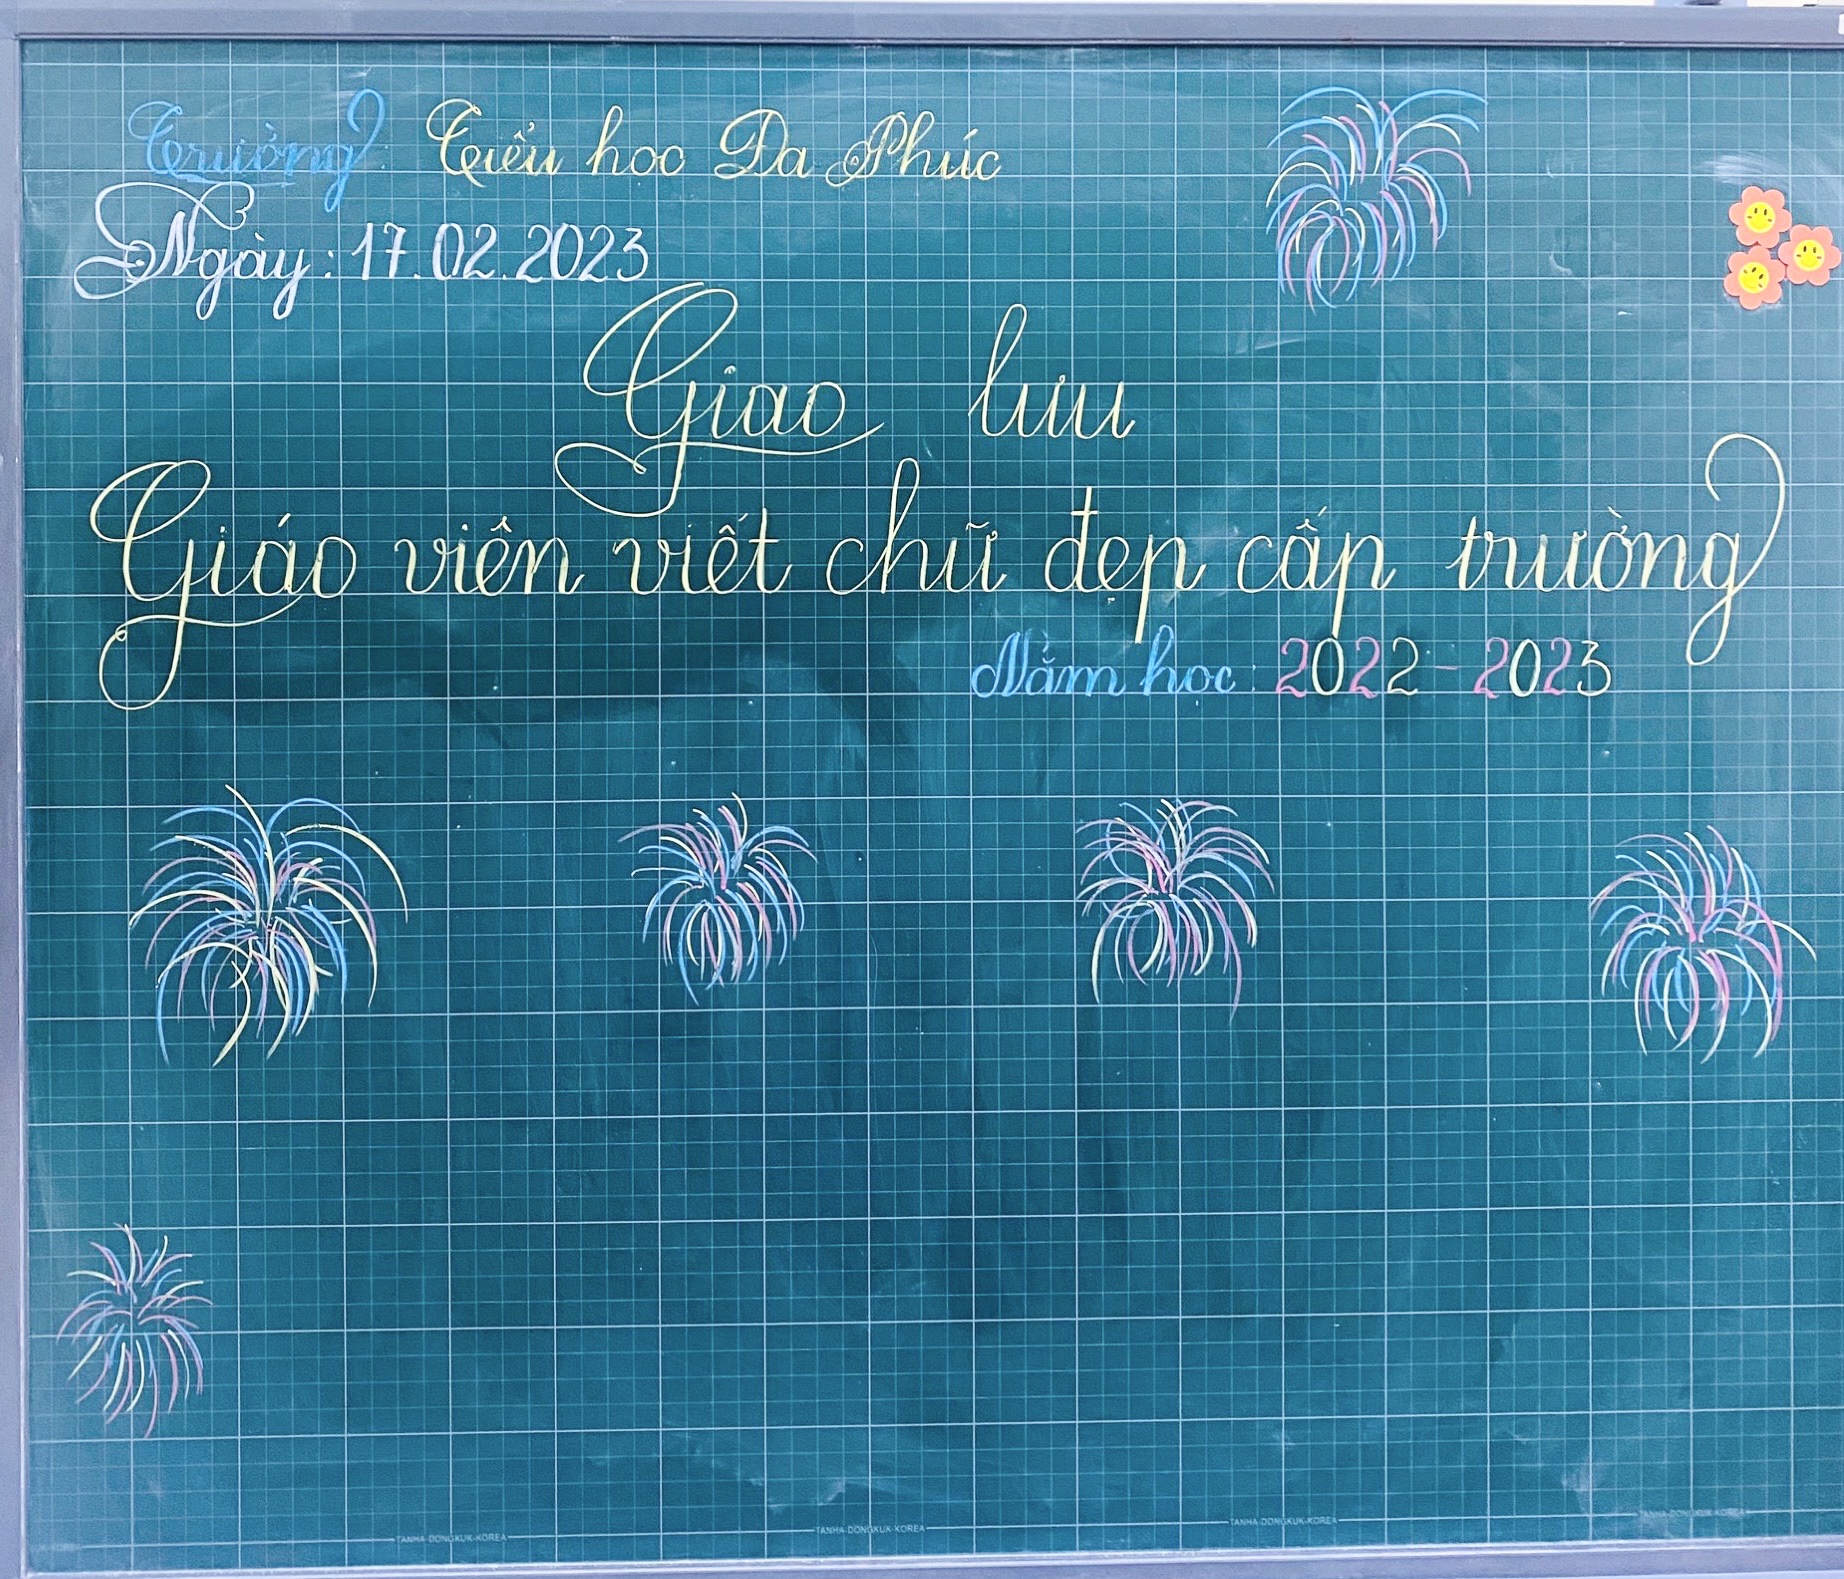 Trường: Tiểu học Đa Phúc
Ngày: 17.02.2023
Giao lưu
Giáo viên viết chữ đẹp cấp trường
Năm học: 2022-2023
TANHA-DONGKUK-KOREA
TANHA-DONGKUK-KOREA
TANHA-DONGKUK-KOREA
TANHA-DONGKUK-KOREA